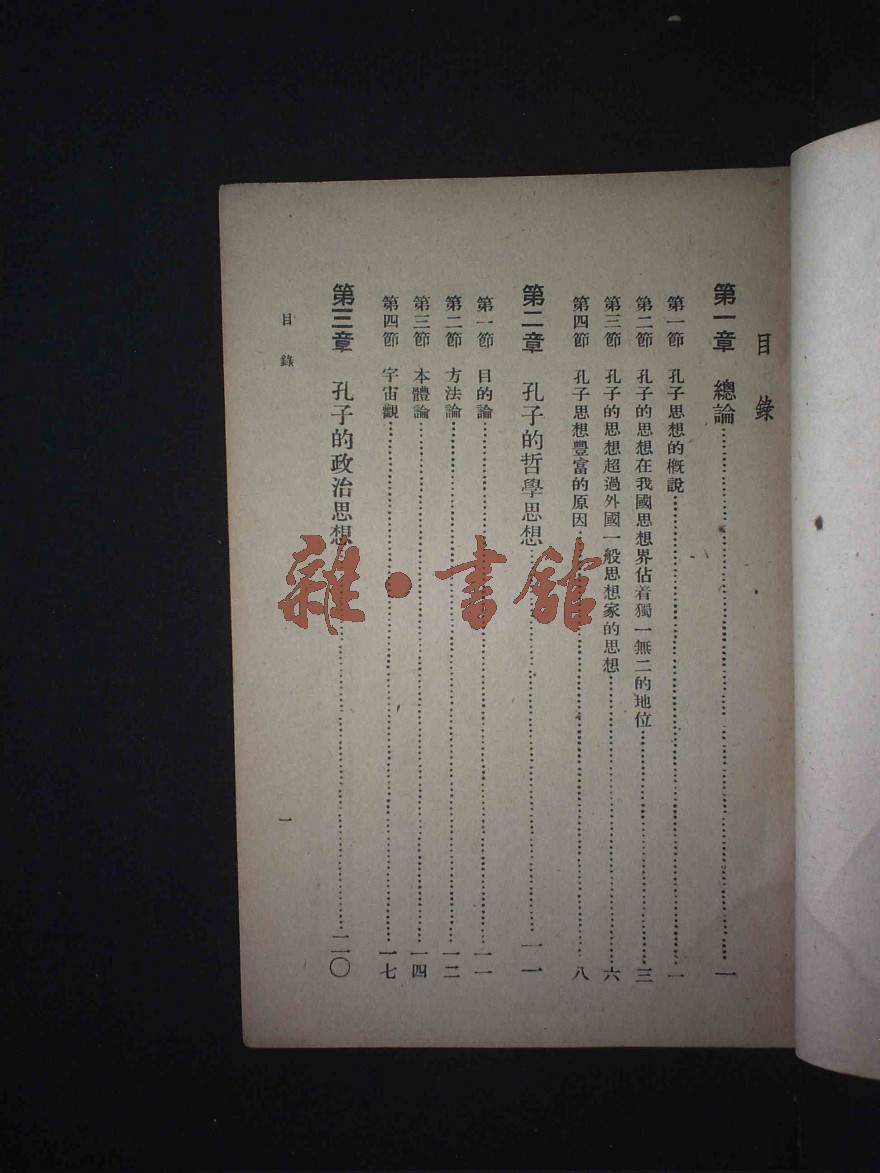 目錄
第一章 總論……一
第一節 孔子思想的概說……一
第二節 孔子的思想在我國思想界佔着獨一無二的地位……三
第三節 孔子的思想超過外國一般思想家的思想……六
第四節 孔子思想豐富的原因……八
第二章 孔子的哲學思想……一一
第一節 目的論……一一
第二節 方法論……一二
第三節 本體論……一四
第四節 宇宙觀……一七
第三章 孔子的政治思想……二〇
目錄 一
雜·書館